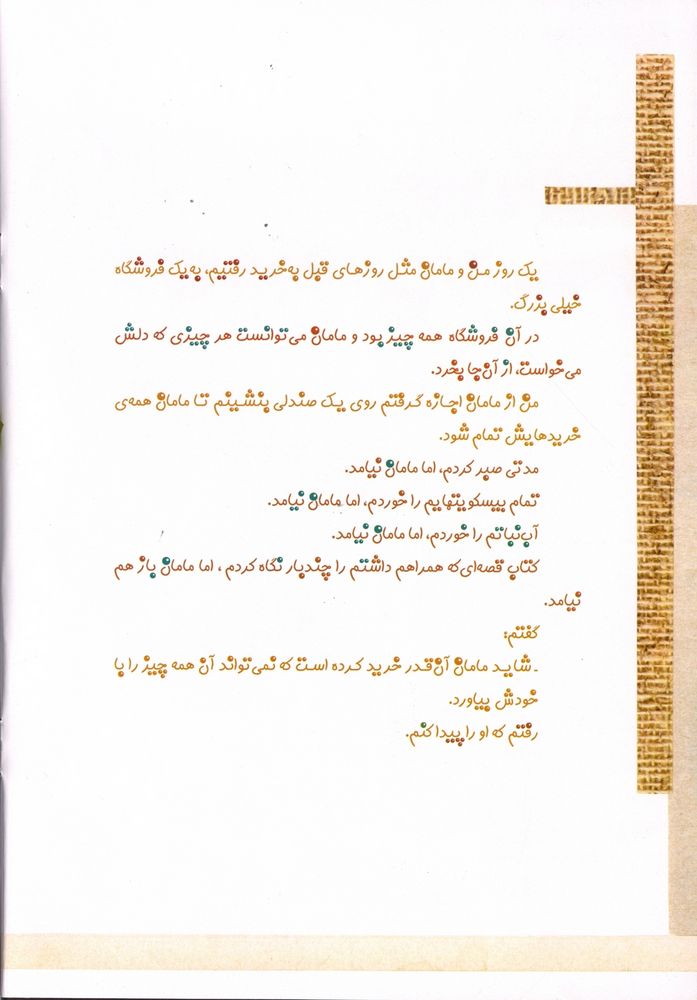 یک روز من و مامان مثل روزهای قبل به‌خرید رفتیم، به یک فروشگاه
خیلی بزرگ.
در آن فروشگاه همه چیز بود و مامان می‌توانست هر چیزی که دلش
می‌خواست، از آن‌جا بخرد.
من از مامان اجازه گرفتم روی یک صندلی بنشینم تا مامان همه‌ی
خریدهایش تمام شود.
مدتی صبر کردم، اما مامان نیامد.
تمام بیسکویتهایم را خوردم، اما مامان نیامد.
آب‌نباتم را خوردم، اما مامان نیامد.
کتاب قصه‌ای‌که همراهم داشتم را چندبار نگاه کردم ، اما مامان باز هم
نیامد.
گفتم:
ـ شاید مامان آن‌قدر خرید کرده است که نمی‌تواند آن همه چیز را با
خودش بیاورد.
رفتم که او را پیدا کنم.